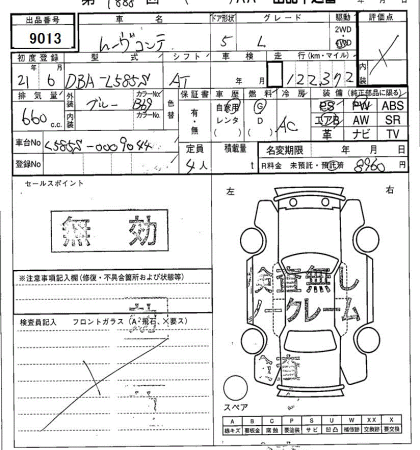 第1888回
出品番号 車名 ドア形状 グレード 駆動 評価点
9013 ムーヴコンテ 5 L 2WD
初度登録 型式 シフト 車検 走行(km・マイル) 内装
21年6月 DBA-L585S AT 年 月 122,372
排気量 外装 ブルー カラーNo. B69 色替 保証書 車歴 燃料 冷房 装備 (純正部品に限る)
660c.c. 内装 カラーNo. 有・無 自家用 レンタ G D AC PS PW ABS
エアB AW SR
革 ナビ TV
車台No L585S-0009044 定員 積載量 名変期限 年 月 日
登録No 4人 t R料金 未預託・預託済 8960円
セールスポイント 左 右
無効
※注意事項記入欄(修復・不具合箇所および状態等)
検査無し
ノークレーム
検査員記入 フロントガラス(A・飛石、×要ス)
スペア
A B C P S U W XX X
線キズ 要板金 腐蝕 要塗装 サビ 凹凸 補修跡 交換跡 要交換